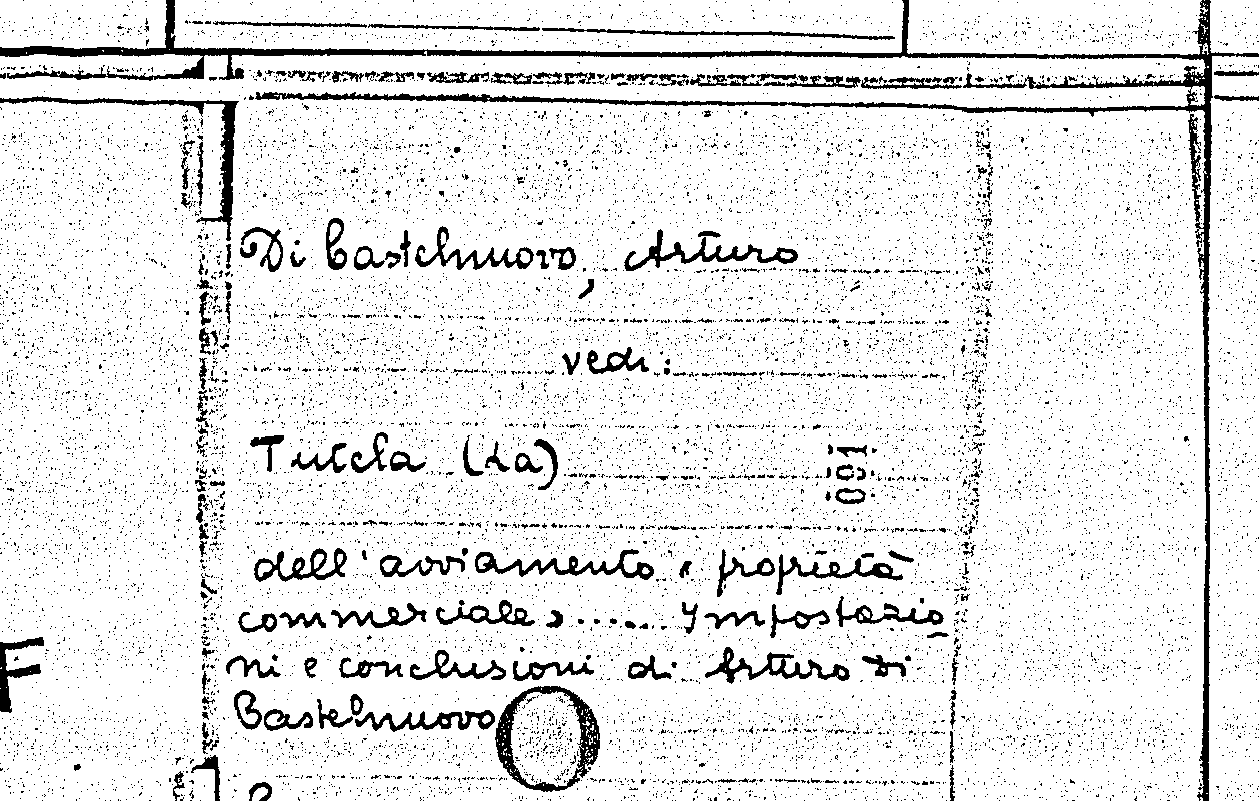 Di Castelnuovo, Arturo
vedi:
Tutela (La)
091
dell'avviamento « proprietà
commerciale »...... Impostazio
ni e conclusioni di Arturo Di
Castelnuovo
F